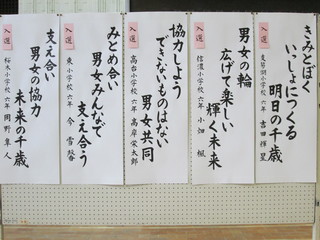 入選
きみとぼく
いっしょにつくる
明日の千歳
入選
男女の輪
広げて楽しい
輝く未来
信濃小学校 六年 小畑 楓
入選
協力しよう
できないものはない
男女共同
高台小学校 六年 高岸 栄太郎
入選
みとめ合い
男女みんなで
支え合う
東小学校 六年 今
入選
支え合い
男女の協力
未来の千歳
桜木小学校 六年 岡野 隼人